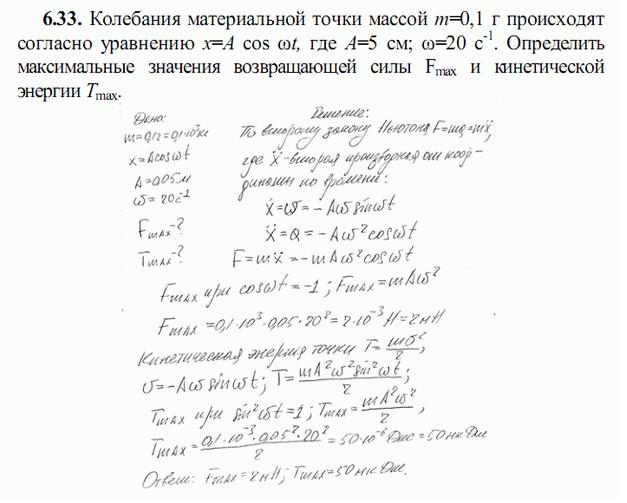 6.33. Колебания материальной точки массой m=0,1 г происходят
согласно уравнению x=A cos ωt, где A=5 см; ω=20 с⁻¹. Определить
максимальные значения возвращающей силы Fmax и кинетической
энергии Tmax.
Дано:
m=0,1г=0,1·10⁻³кг
x=Acosωt
A=0,05м
ω=20c⁻¹
Fmax-?
Tmax-?
Решение:
По второму закону Ньютона F=ma=mẍ,
где ẍ-вторая производная от коор-
динаты по времени:
ẋ=υ=-Aωsinωt
ẍ=a=-Aω²cosωt
F=mẍ=-mAω²cosωt
Fmax при cosωt=-1; Fmax=mAω²
Fmax=0,1·10⁻³·0,05·20²=2·10⁻³ Н=2мН
Кинетическая энергия точки T=mυ²/2,
υ=-Aωsinωt; T=mA²ω²sin²ωt/2;
Tmax при sin²ωt=1; Tmax=mA²ω²/2,
Tmax=0,1·10⁻³·0,05²·20²/2=50·10⁻⁶Дж=50мкДж
Ответ: Fmax=2мН; Tmax=50мкДж.